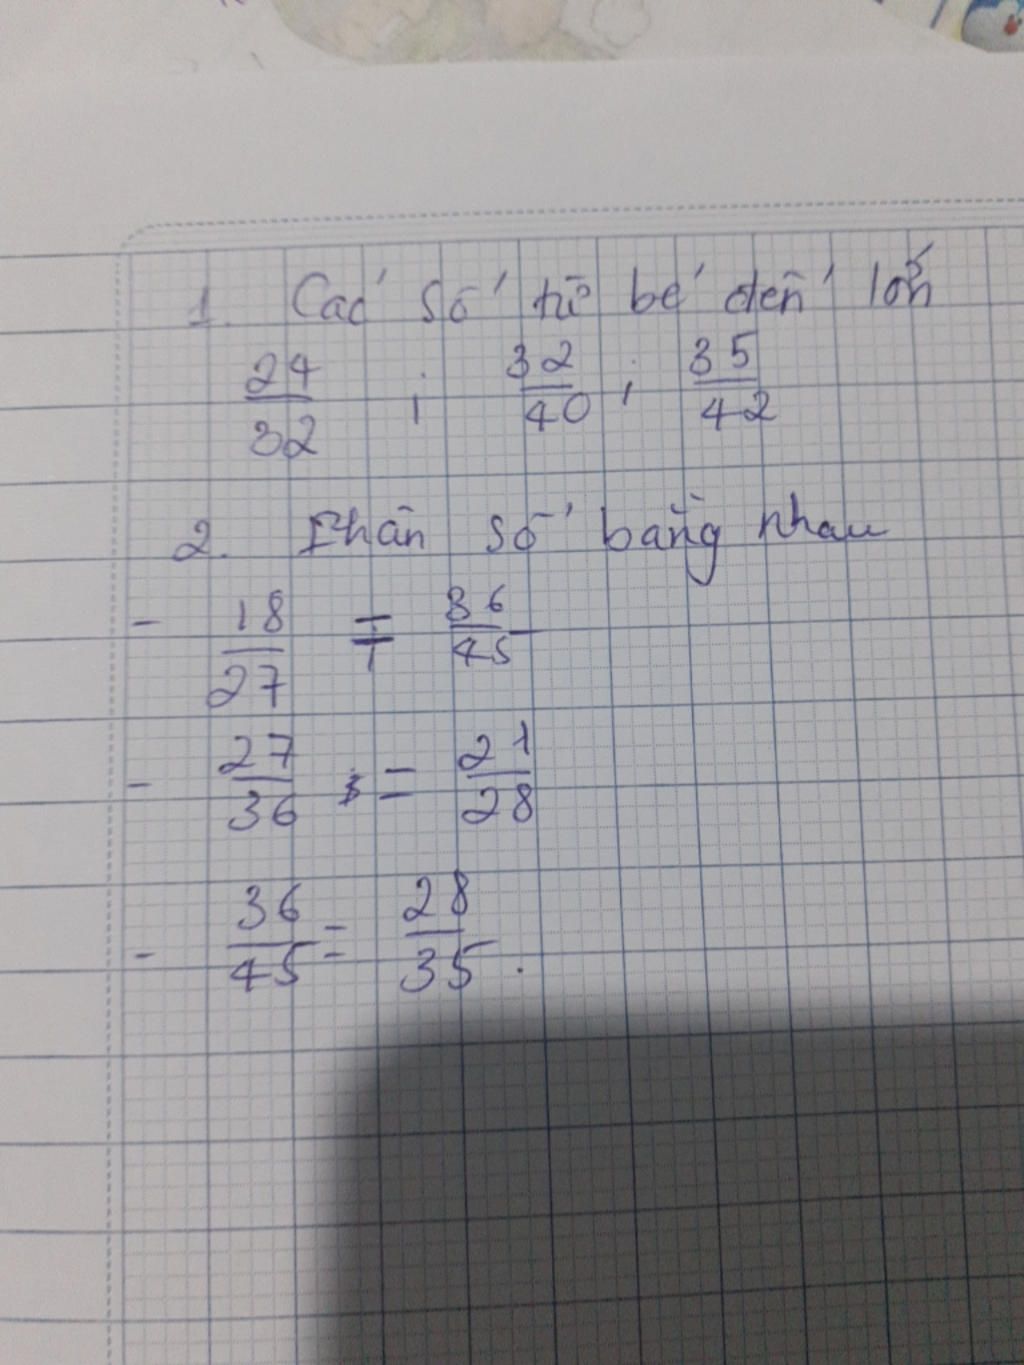 1. Các số từ bé đến lớn
24/32 ; 32/40 ; 35/42
2. Phân số bằng nhau
- 18/27 = 36/45
- 27/36 = 21/28
- 36/45 = 28/35.